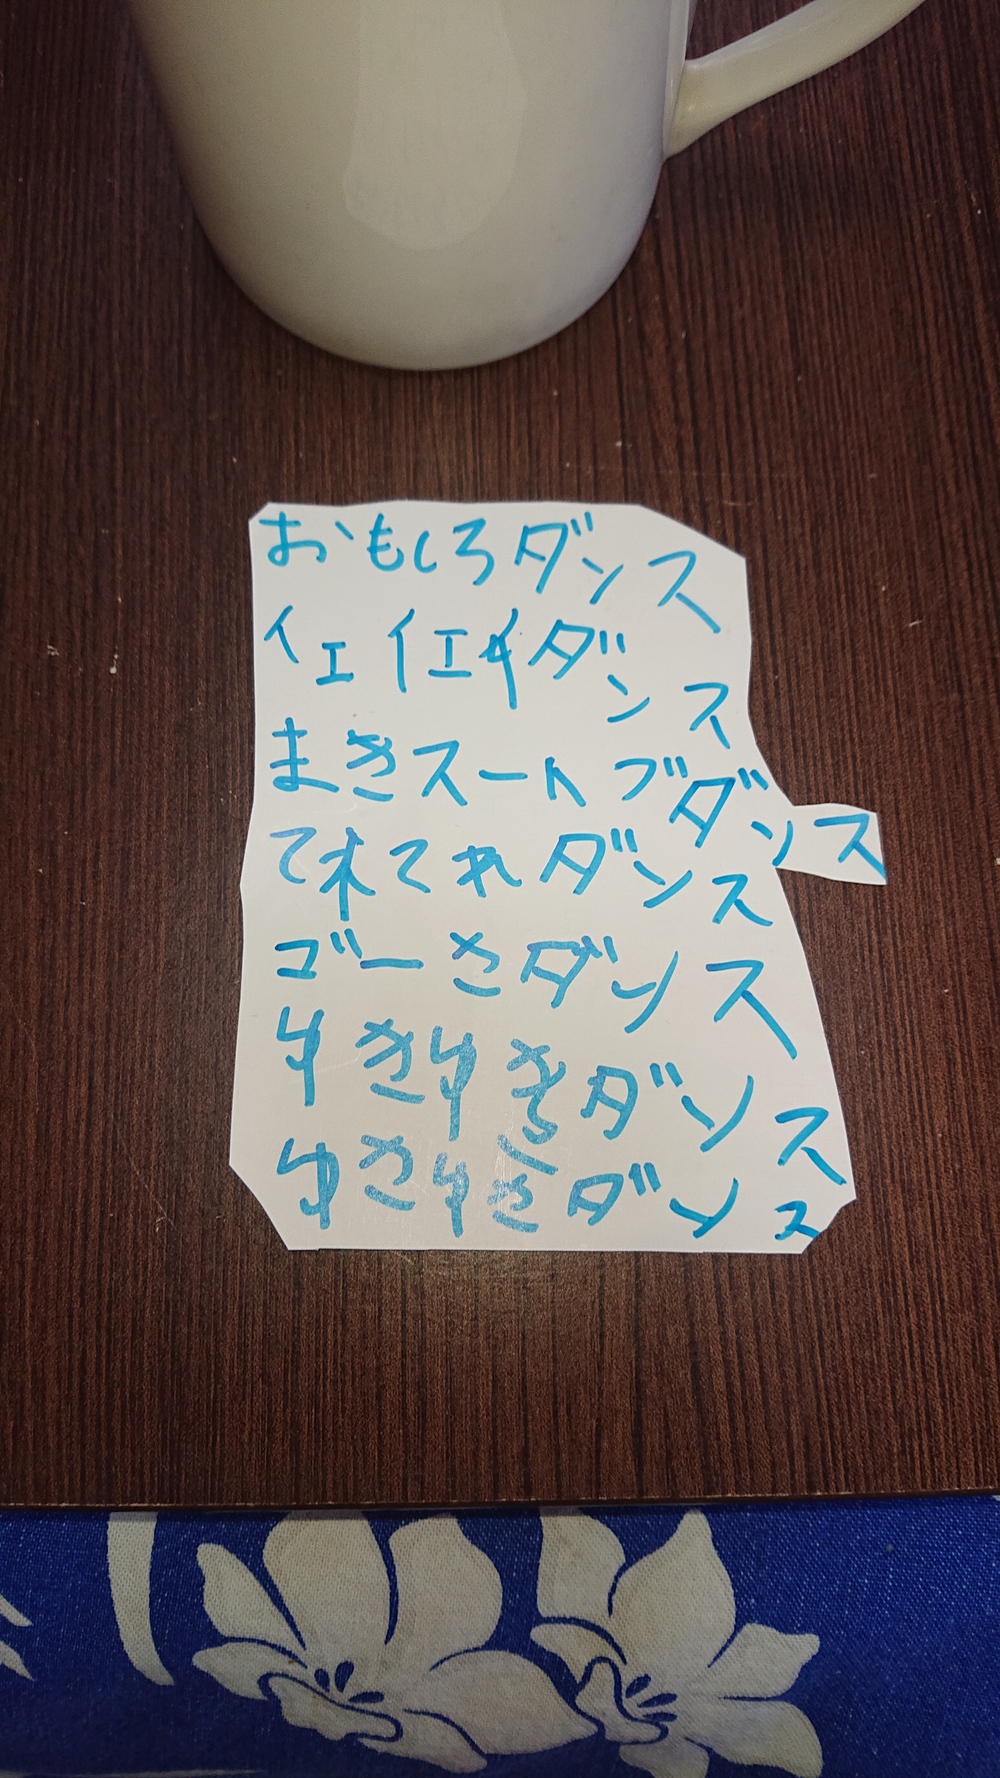 おもしろダンス
イェイエイダンス
まきスーヘブダンス
てれてれダンス
ゴーさダンス
ゆきゆきダンス
ゆさゆさダンス